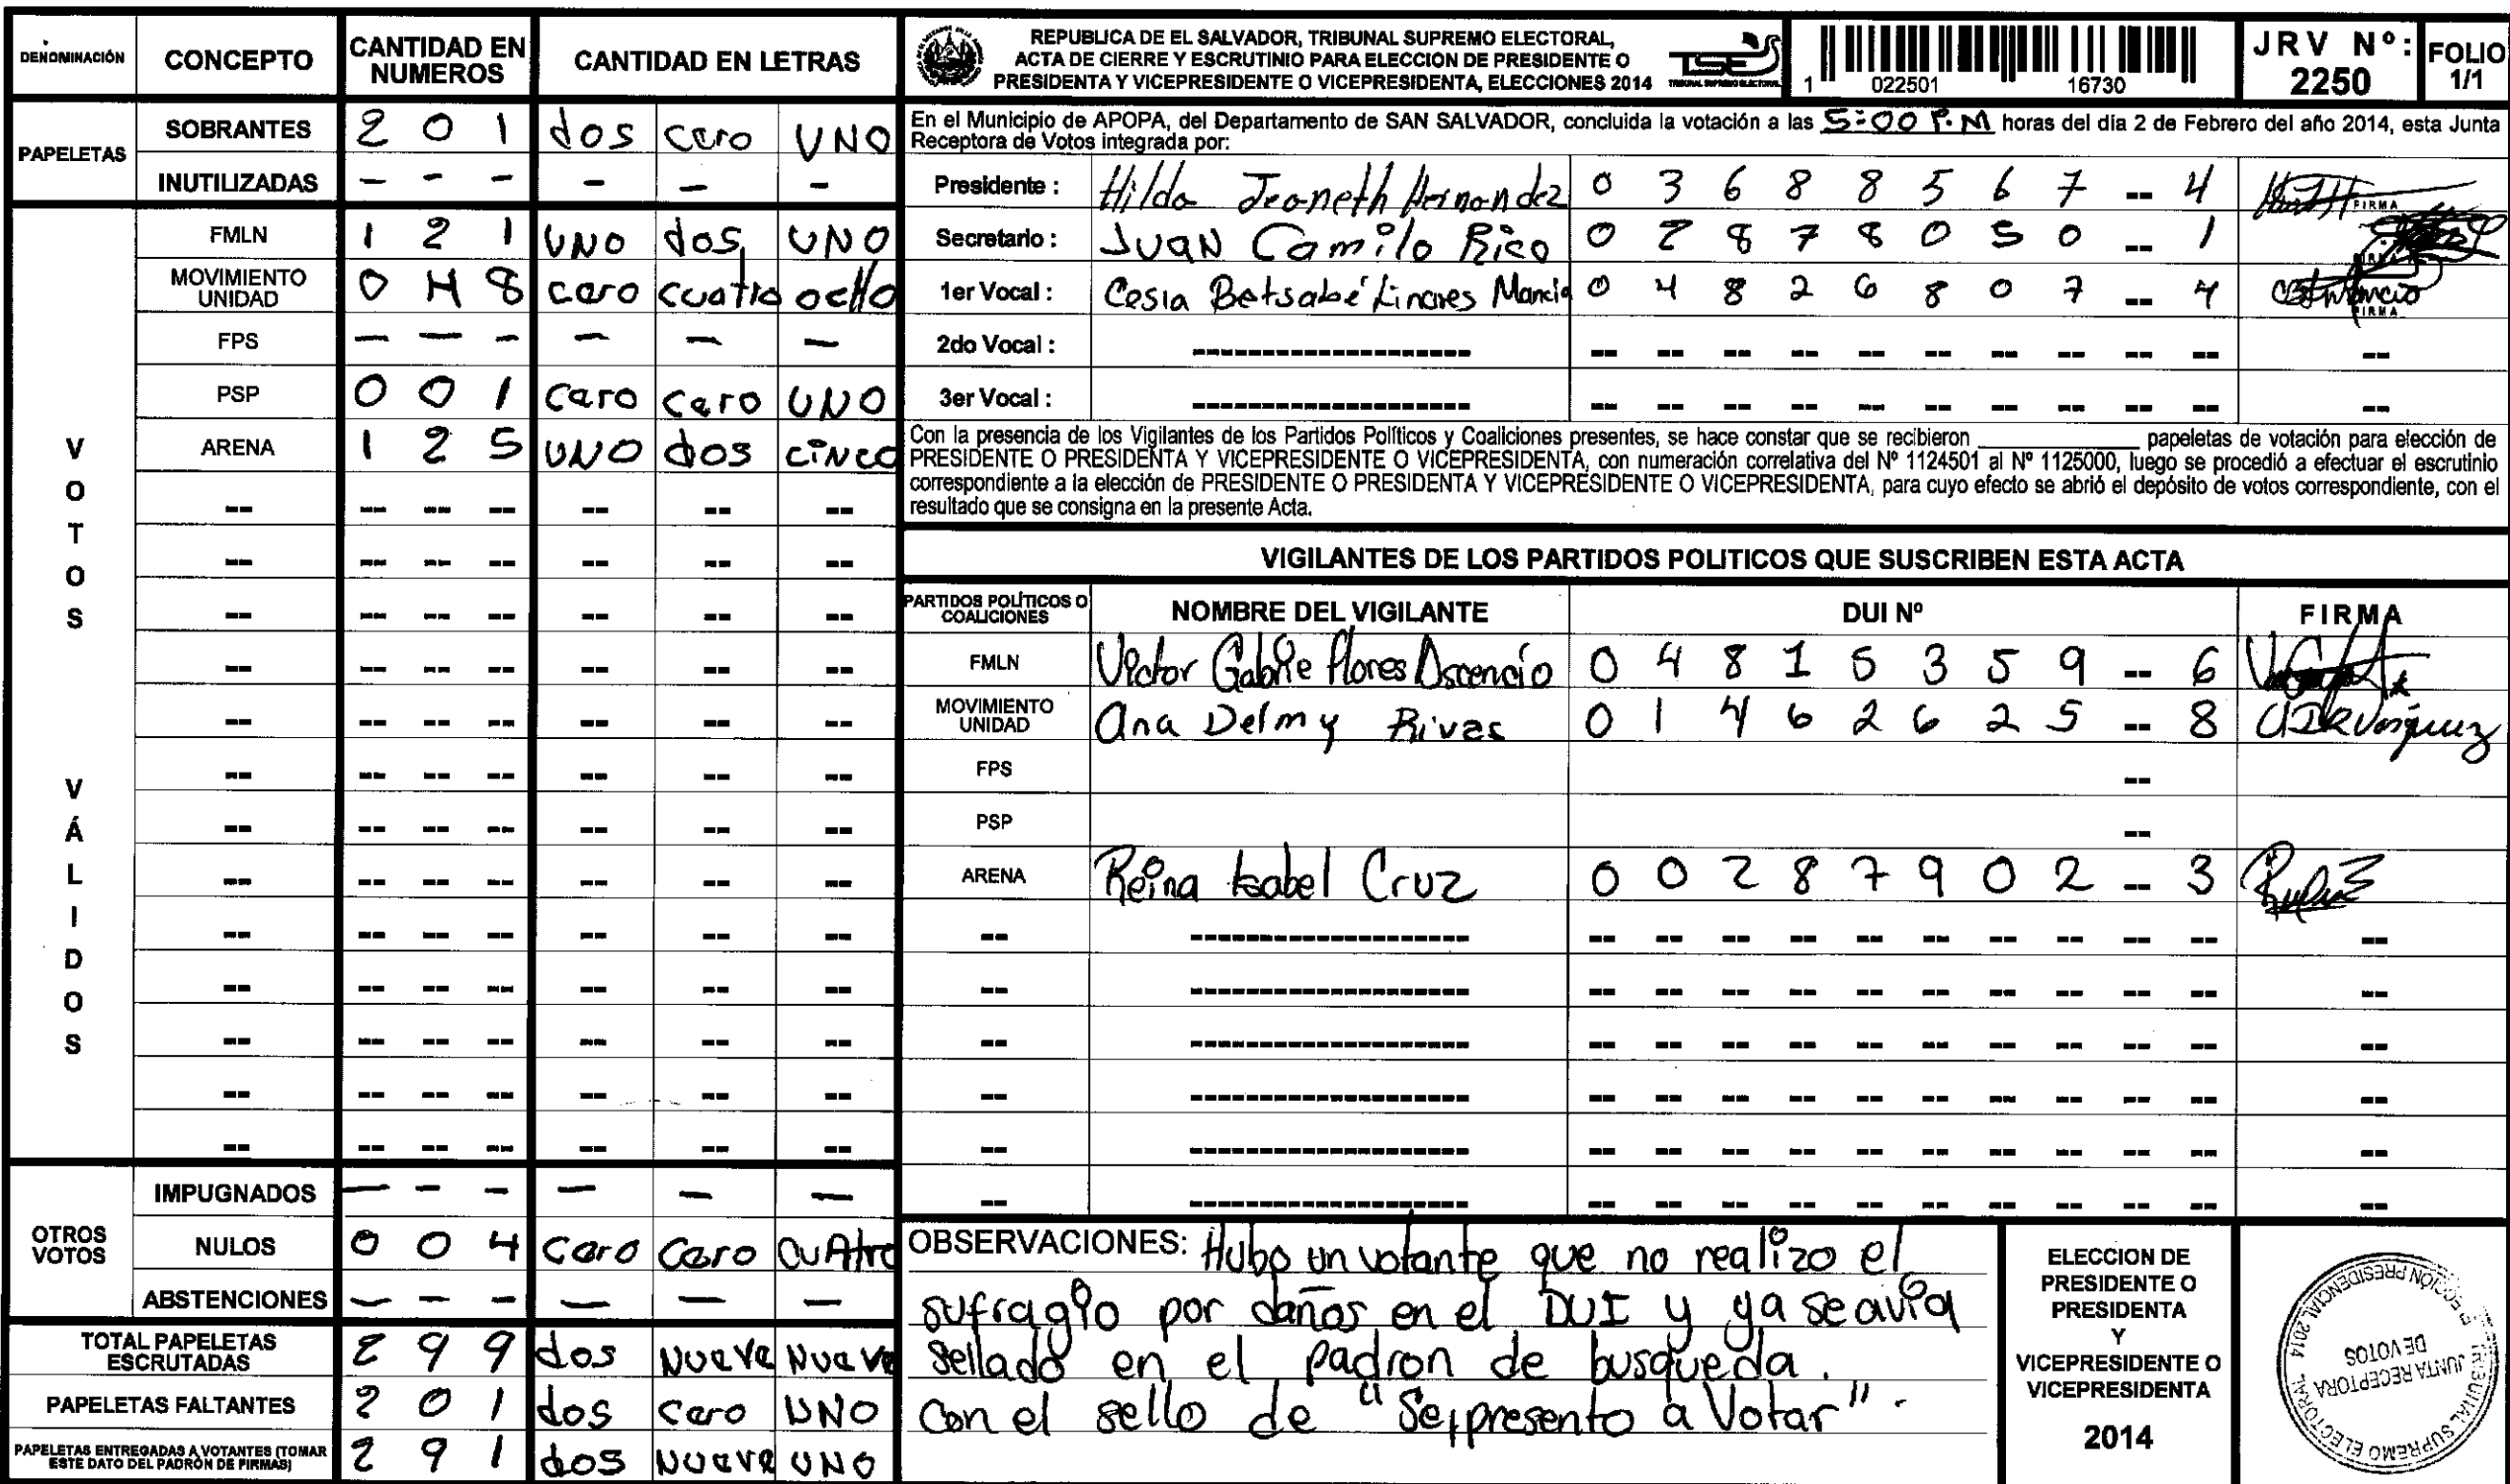 DENOMINACIÓN CONCEPTO CANTIDAD EN NUMEROS CANTIDAD EN LETRAS
PAPELETAS
SOBRANTES 2 0 1 dos cero UNO
INUTILIZADAS - - - - - -
VOTOS VÁLIDOS
FMLN 1 2 1 UNO dos UNO
MOVIMIENTO UNIDAD 0 4 8 cero cuatro ocho
FPS - - - - - -
PSP 0 0 1 cero cero UNO
ARENA 1 2 5 UNO dos cinco
-- -- -- -- -- -- --
-- -- -- -- -- -- --
-- -- -- -- -- -- --
-- -- -- -- -- -- --
-- -- -- -- -- -- --
-- -- -- -- -- -- --
-- -- -- -- -- -- --
-- -- -- -- -- -- --
-- -- -- -- -- -- --
-- -- -- -- -- -- --
-- -- -- -- -- -- --
-- -- -- -- -- -- --
-- -- -- -- -- -- --
OTROS VOTOS
IMPUGNADOS - - - - - -
NULOS 0 0 4 cero cero cuatro
ABSTENCIONES - - - - - -
TOTAL PAPELETAS ESCRUTADAS 2 9 9 dos Nueve Nueve
PAPELETAS FALTANTES 2 0 1 dos cero UNO
PAPELETAS ENTREGADAS A VOTANTES (TOMAR ESTE DATO DEL PADRÓN DE FIRMAS) 2 9 1 dos Nueve UNO
REPUBLICA DE EL SALVADOR, TRIBUNAL SUPREMO ELECTORAL,
ACTA DE CIERRE Y ESCRUTINIO PARA ELECCION DE PRESIDENTE O
PRESIDENTA Y VICEPRESIDENTE O VICEPRESIDENTA, ELECCIONES 2014
TSE
TRIBUNAL SUPREMO ELECTORAL
1 022501 16730
JRV Nº: 2250
FOLIO 1/1
En el Municipio de APOPA, del Departamento de SAN SALVADOR, concluida la votación a las 5:00 P.M horas del día 2 de Febrero del año 2014, esta Junta
Receptora de Votos integrada por:
Presidente : Hilda Jeaneth Hernandez 0 3 6 8 8 5 6 7 -- 4 FIRMA
Secretario : Juan Camilo Rico 0 2 8 7 8 0 5 0 -- 1
1er Vocal : Cesia Betsabé Linares Mancia 0 4 8 2 6 8 0 7 -- 4 FIRMA
2do Vocal : -------------------- -- -- -- -- -- -- -- -- -- -- --
3er Vocal : -------------------- -- -- -- -- -- -- -- -- -- -- --
Con la presencia de los Vigilantes de los Partidos Políticos y Coaliciones presentes, se hace constar que se recibieron ________ papeletas de votación para elección de
PRESIDENTE O PRESIDENTA Y VICEPRESIDENTE O VICEPRESIDENTA, con numeración correlativa del Nº 1124501 al Nº 1125000, luego se procedió a efectuar el escrutinio
correspondiente a la elección de PRESIDENTE O PRESIDENTA Y VICEPRESIDENTE O VICEPRESIDENTA, para cuyo efecto se abrió el depósito de votos correspondiente, con el
resultado que se consigna en la presente Acta.
VIGILANTES DE LOS PARTIDOS POLITICOS QUE SUSCRIBEN ESTA ACTA
PARTIDOS POLÍTICOS O COALICIONES NOMBRE DEL VIGILANTE DUI Nº FIRMA
FMLN Victor Gabrie Flores Ascencio 0 4 8 1 5 3 5 9 -- 6
MOVIMIENTO UNIDAD Ana Delmy Rivas 0 1 4 6 2 6 2 5 -- 8
FPS --
PSP --
ARENA Reina Isabel Cruz 0 0 2 8 7 9 0 2 -- 3
-- -------------------- -- -- -- -- -- -- -- -- -- -- --
-- -------------------- -- -- -- -- -- -- -- -- -- -- --
-- -------------------- -- -- -- -- -- -- -- -- -- -- --
-- -------------------- -- -- -- -- -- -- -- -- -- -- --
-- -------------------- -- -- -- -- -- -- -- -- -- -- --
-- -------------------- -- -- -- -- -- -- -- -- -- -- --
OBSERVACIONES: Hubo un votante que no realizo el
sufragio por daños en el DUI y ya se avia
sellado en el padron de busqueda.
Con el sello de "Se presento a Votar".
ELECCION DE
PRESIDENTE O
PRESIDENTA
Y
VICEPRESIDENTE O
VICEPRESIDENTA
2014
TRIBUNAL SUPREMO ELECTORAL
JUNTA RECEPTORA
DE VOTOS
PRESIDENCIAL 2014